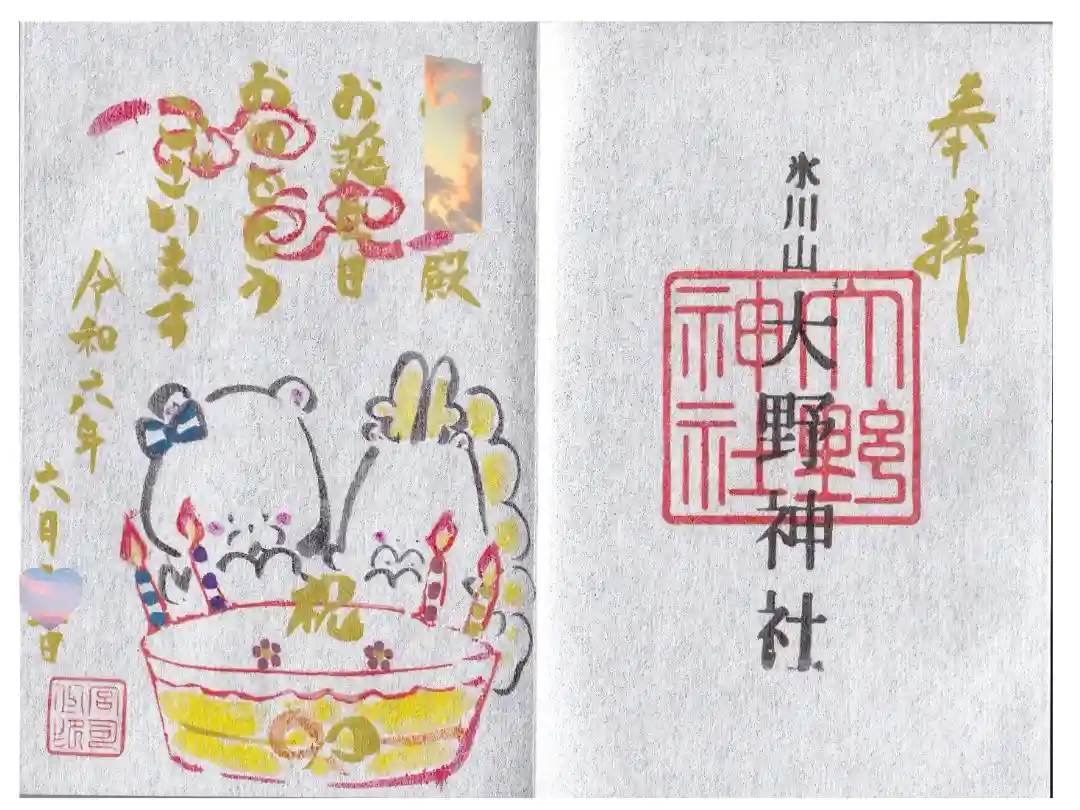 奉拝
氷川山
大野神社
大野
神社
殿
お誕生日
おめでとう
ございます
令和六年
六月
日
祝